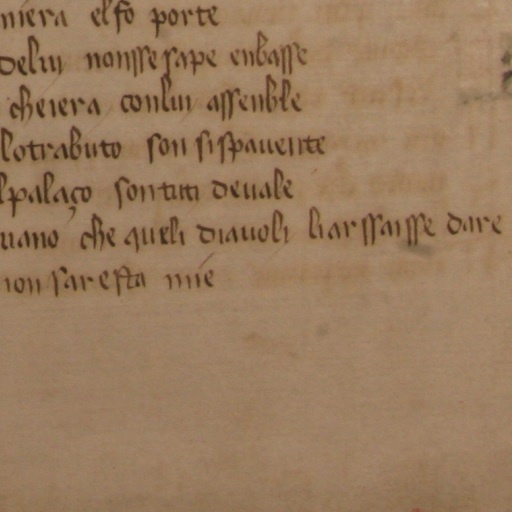 niera elfo porte
deluj nonsse sape enbasse
cheiera conlui assenble
lotrabuto son si spauente
lpalaço son tuti deuale
uano che queli diauoli li arssaisse dare
non saresta mie